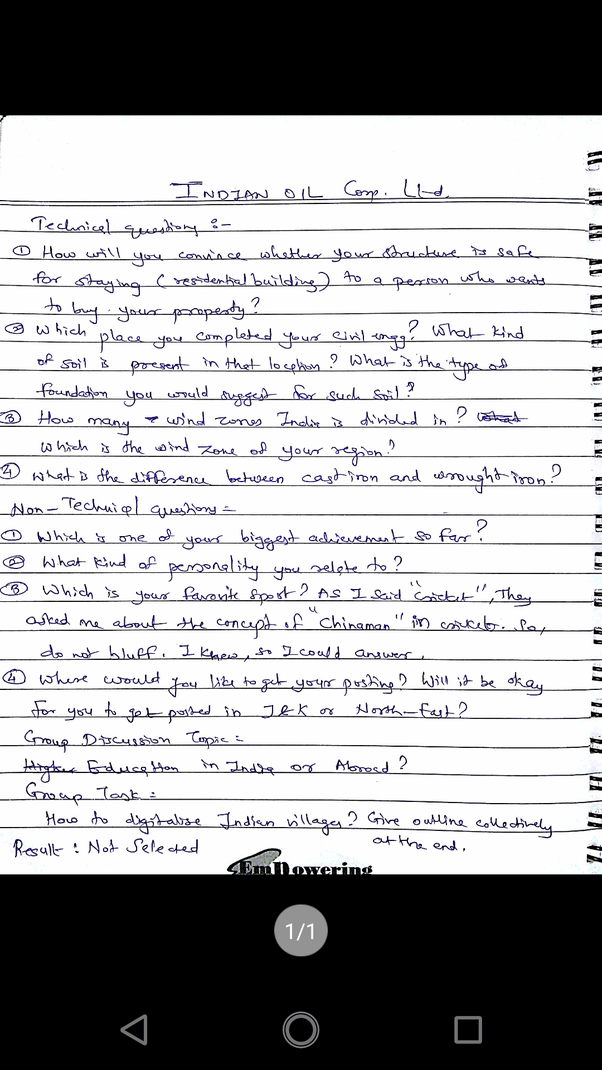 INDIAN OIL Corp. Ltd.
Technical questions :-
① How will you convince whether your structure is safe
for staying (residential building) to a person who wants
to buy your property?
② Which place you completed your civil engg? What kind
of soil is present in that location? What is the type of
foundation you would suggest for such soil?
③ How many wind zones India is divided in? What
Which is the wind zone of your region?
④ What is the difference between cast iron and wrought iron?
Non-Technical questions =
① Which is one of your biggest achievement so far?
② What kind of personality you relate to?
③ Which is your favorite sport? As I said "cricket", They
asked me about the concept of "Chinaman" in cricket. So,
do not bluff. I knew, so I could answer.
④ Where would you like to get your posting? Will it be okay
for you to get posted in J&K or North-East?
Group Discussion Topic =
Higher Education in India or Abroad?
Group Task =
How to digitalise Indian villages? Give outline collectively
at the end.
Result : Not Selected
EmPowering
1/1